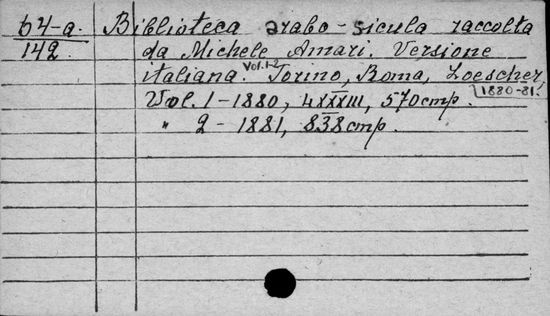 64-a. Biblioteca arabo-sicula raccolta
142 da Michele Amari. Versione
italiana. Vol. 1-2 Torino, Roma, Loescher,
1880-81.
Vol. 1-1880, 570 стр.
" 2 - 1881, 838 стр.